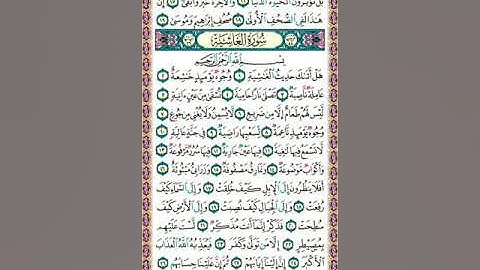 بَلْ تُؤْثِرُونَ الْحَيَوٰةَ الدُّنْيَا ١٦ وَالْآخِرَةُ خَيْرٌ وَأَبْقَىٰ ١٧ إِنَّ
هَٰذَا لَفِي الصُّحُفِ الْأُولَىٰ ١٨ صُحُفِ إِبْرَاهِيمَ وَمُوسَىٰ ١٩
سُورَةُ الْغَاشِيَةِ
بِسْمِ اللَّهِ الرَّحْمَٰنِ الرَّحِيمِ
هَلْ أَتَاكَ حَدِيثُ الْغَاشِيَةِ ١ وُجُوهٌ يَوْمَئِذٍ خَاشِعَةٌ ٢
عَامِلَةٌ نَاصِبَةٌ ٣ تَصْلَىٰ نَارًا حَامِيَةً ٤ تُسْقَىٰ مِنْ عَيْنٍ آنِيَةٍ ٥
لَيْسَ لَهُمْ طَعَامٌ إِلَّا مِنْ ضَرِيعٍ ٦ لَا يُسْمِنُ وَلَا يُغْنِي مِنْ جُوعٍ ٧
وُجُوهٌ يَوْمَئِذٍ نَاعِمَةٌ ٨ لِسَعْيِهَا رَاضِيَةٌ ٩ فِي جَنَّةٍ عَالِيَةٍ ١٠
لَا تَسْمَعُ فِيهَا لَاغِيَةً ١١ فِيهَا عَيْنٌ جَارِيَةٌ ١٢ فِيهَا سُرُرٌ مَرْفُوعَةٌ ١٣
وَأَكْوَابٌ مَوْضُوعَةٌ ١٤ وَنَمَارِقُ مَصْفُوفَةٌ ١٥ وَزَرَابِيُّ مَبْثُوثَةٌ ١٦
أَفَلَا يَنْظُرُونَ إِلَى الْإِبِلِ كَيْفَ خُلِقَتْ ١٧ وَإِلَى السَّمَاءِ كَيْفَ
رُفِعَتْ ١٨ وَإِلَى الْجِبَالِ كَيْفَ نُصِبَتْ ١٩ وَإِلَى الْأَرْضِ كَيْفَ
سُطِحَتْ ٢٠ فَذَكِّرْ إِنَّمَا أَنْتَ مُذَكِّرٌ ٢١ لَسْتَ عَلَيْهِمْ
بِمُصَيْطِرٍ ٢٢ إِلَّا مَنْ تَوَلَّىٰ وَكَفَرَ ٢٣ فَيُعَذِّبُهُ اللَّهُ الْعَذَابَ
الْأَكْبَرَ ٢٤ إِنَّ إِلَيْنَا إِيَابَهُمْ ٢٥ ثُمَّ إِنَّ عَلَيْنَا حِسَابَهُمْ ٢٦